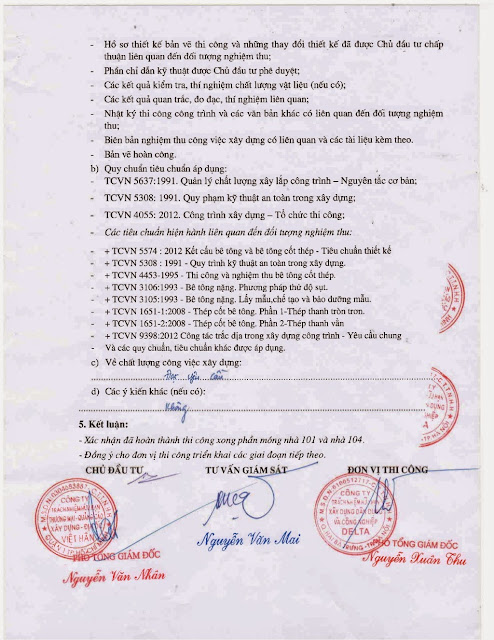 - Hồ sơ thiết kế bản vẽ thi công và những thay đổi thiết kế đã được Chủ đầu tư chấp
thuận liên quan đến đối tượng nghiệm thu;
- Phần chỉ dẫn kỹ thuật được Chủ đầu tư phê duyệt;
- Các kết quả kiểm tra, thí nghiệm chất lượng vật liệu (nếu có);
- Các kết quả quan trắc, đo đạc, thí nghiệm liên quan;
- Nhật ký thi công công trình và các văn bản khác có liên quan đến đối tượng nghiệm
thu;
- Biên bản nghiệm thu công việc xây dựng có liên quan và các tài liệu kèm theo.
- Bản vẽ hoàn công.
b) Quy chuẩn tiêu chuẩn áp dụng:
- TCVN 5637:1991. Quản lý chất lượng xây lắp công trình – Nguyên tắc cơ bản;
- TCVN 5308: 1991. Quy phạm kỹ thuật an toàn trong xây dựng;
- TCVN 4055: 2012. Công trình xây dựng – Tổ chức thi công;
- Các tiêu chuẩn hiện hành liên quan đến đối tượng nghiệm thu:
- + TCVN 5574 : 2012 Kết cấu bê tông và bê tông cốt thép - Tiêu chuẩn thiết kế
- + TCVN 5308 : 1991 - Quy trình kỹ thuật an toàn trong xây dựng.
- + TCVN 4453-1995 - Thi công và nghiệm thu bê tông cốt thép.
- + TCVN 3106:1993 - Bê tông nặng. Phương pháp thử độ sụt.
- + TCVN 3105:1993 - Bê tông nặng. Lấy mẫu,chế tạo và bảo dưỡng mẫu.
- + TCVN 1651-1:2008 - Thép cốt bê tông. Phần 1-Thép thanh tròn trơn.
- + TCVN 1651-2:2008 - Thép cốt bê tông. Phần 2-Thép thanh vằn
- + TCVN 9398:2012 Công tác trắc địa trong xây dựng công trình - Yêu cầu chung
- Và các quy chuẩn, tiêu chuẩn khác được áp dụng.
c) Về chất lượng công việc xây dựng:
Đạt yêu cầu
d) Các ý kiến khác (nếu có):
Không
5. Kết luận:
- Xác nhận đã hoàn thành thi công xong phần móng nhà 101 và nhà 104.
- Đồng ý cho đơn vị thi công triển khai các giai đoạn tiếp theo.
CHỦ ĐẦU TƯ TƯ VẤN GIÁM SÁT ĐƠN VỊ THI CÔNG
CÔNG TY
TRÁCH NHIỆM HỮU HẠN
XÂY DỰNG
VIỆT HÀN
CÔNG TY
TRÁCH NHIỆM HỮU HẠN
XÂY DỰNG DÂN DỤNG
VÀ CÔNG NGHIỆP
DELTA
PHÓ TỔNG GIÁM ĐỐC
PHÓ TỔNG GIÁM ĐỐC
Nguyễn Văn Nhân
Nguyễn Văn Mai
Nguyễn Xuân Thu